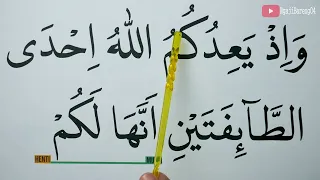 وَاِذْ يَعِدُكُمُ اللّٰهُ اِحْدَى
الطَّاۤىِٕفَتَيْنِ اَنَّهَا لَكُمْ
HENTI